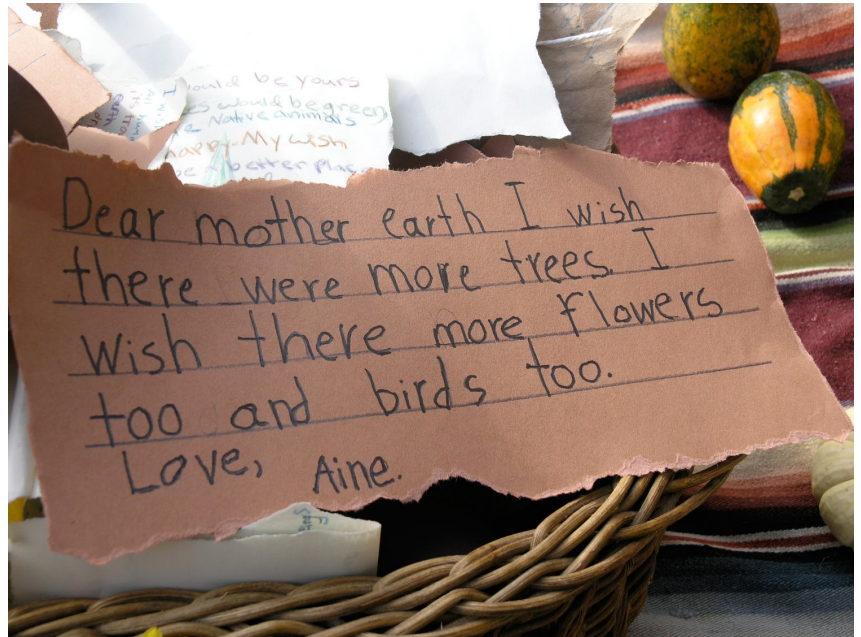 ould be yours
es would be green,
Native animals
happy. My wish
be better plac
Dear mother earth I wish
there were more trees. I
wish there more flowers
too and birds too.
Love, Aine.